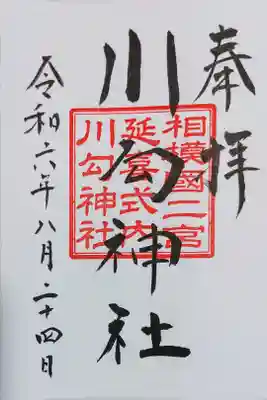 奉拝
川勾神社
相模國二宮
延喜式内
川勾神社
令和六年八月二十四日